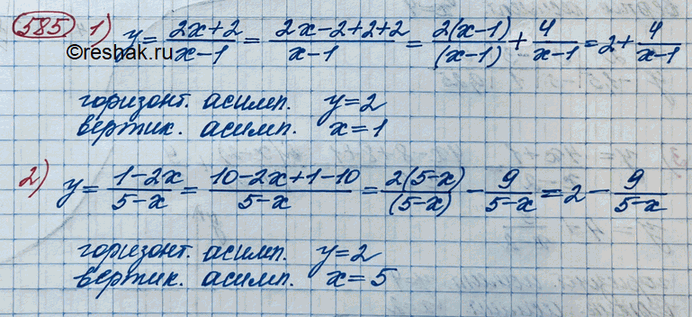 585 1) y = (2x+2)/(x-1) = (2x-2+2+2)/(x-1) = 2(x-1)/(x-1) + 4/(x-1) = 2 + 4/(x-1)
©reshak.ru
горизонт. асимп. y=2
вертик. асимп. x=1
2) y = (1-2x)/(5-x) = (10-2x+1-10)/(5-x) = 2(5-x)/(5-x) - 9/(5-x) = 2 - 9/(5-x)
горизонт. асимп. y=2
вертик. асимп. x=5